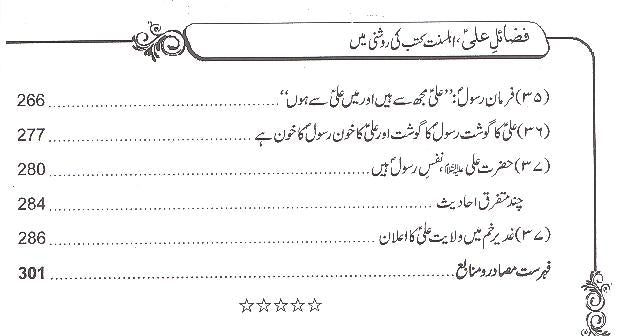 فضائلِ علیؑ، اہلسنت کتب کی روشنی میں
(۳۵) فرمان رسولؐ: ”علیؑ مجھ سے ہیں اور میں علیؑ سے ہوں“ 266
(۳۶) علیؑ کا گوشت رسولؐ کا گوشت اور علیؑ کا خون رسولؐ کا خون ہے 277
(۳۷) حضرت علی علیہ السلام، نفسِ رسولؐ ہیں 280
چند متفرق احادیث 284
(۳۷) غدیر خم میں ولایت علیؑ کا اعلان 286
فہرست مصادر و منابع 301
☆☆☆☆☆